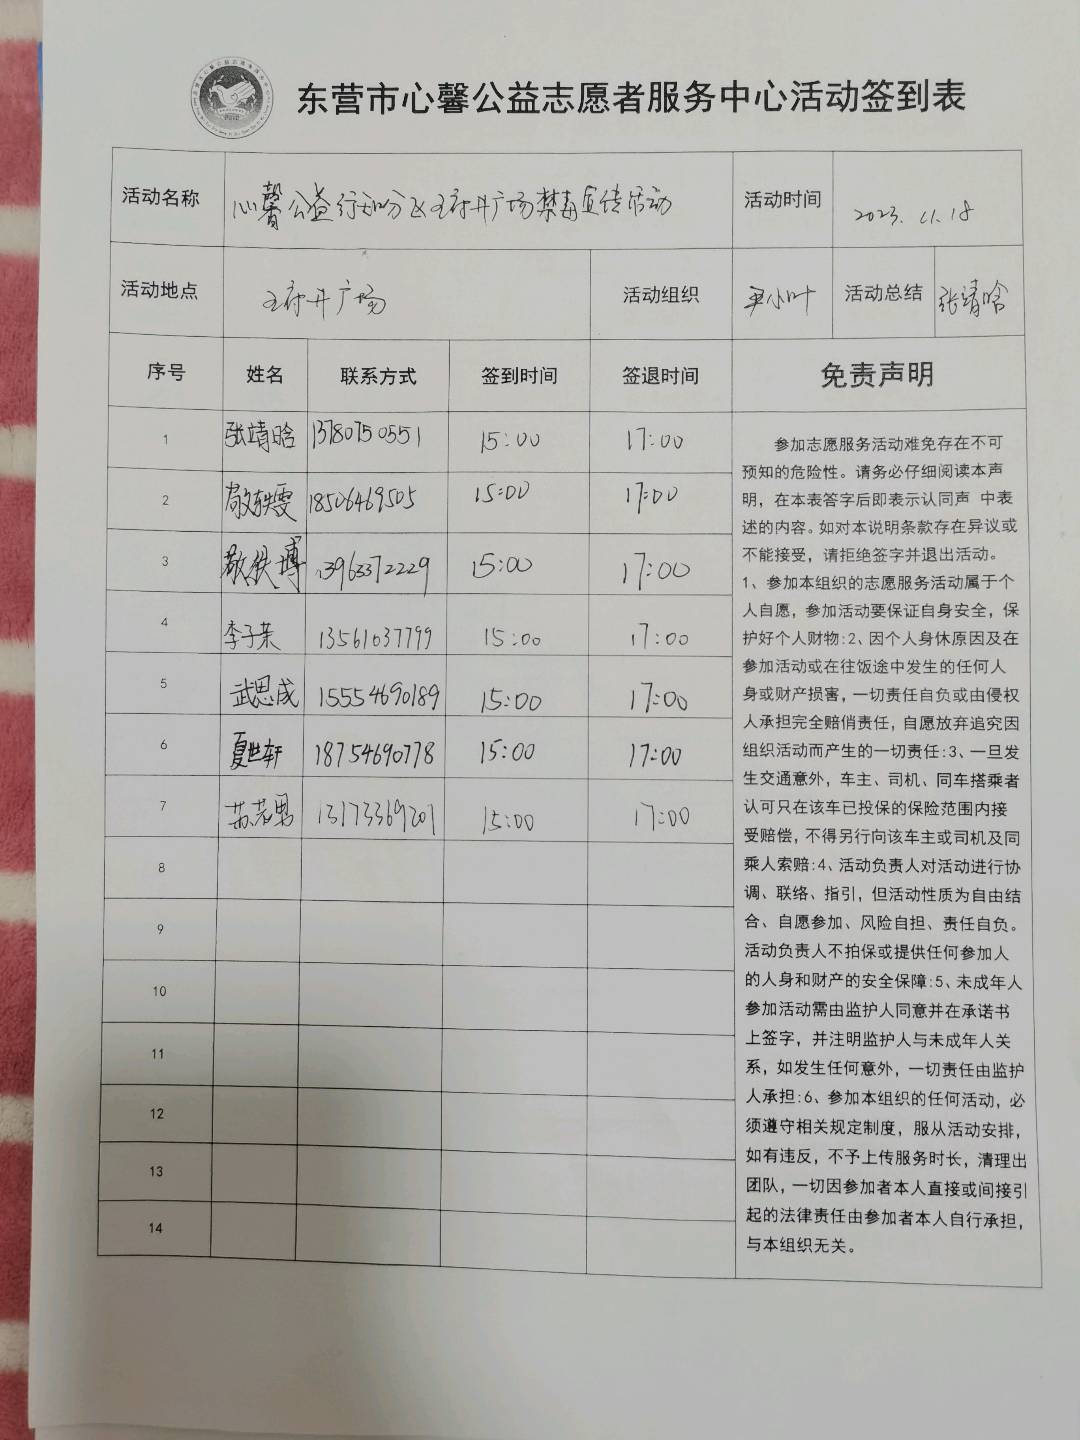 东营市心馨公益志愿者服务中心活动签到表
活动名称 心馨公益行动分区王府井广场禁毒宣传活动 活动时间 2023.11.18
活动地点 王府井广场 活动组织 尹小叶 活动总结 张靖晗
序号 姓名 联系方式 签到时间 签退时间 免责声明
1 张靖晗 13780750551 15:00 17:00
2 18506469505 15:00 17:00
3 13963372229 15:00 17:00
4 李子荣 13561037799 15:00 17:00
5 武思成 15554690189 15:00 17:00
6 夏世轩 18754690778 15:00 17:00
7 苏若男 13173369201 15:00 17:00
8
9
10
11
12
13
14
参加志愿服务活动难免存在不可
预知的危险性。请务必仔细阅读本声
明，在本表签字后即表示认同声 中表
述的内容。如对本说明条款存在异议或
不能接受，请拒绝签字并退出活动。
1、参加本组织的志愿服务活动属于个
人自愿，参加活动要保证自身安全，保
护好个人财物:2、因个人身休原因及在
参加活动或在往饭途中发生的任何人
身或财产损害，一切责任自负或由侵权
人承担完全赔俏责任，自愿放弃追究因
组织活动而产生的一切责任:3、一旦发
生交通意外，车主、司机、同车搭乘者
认可只在该车已投保的保险范围内接
受赔偿，不得另行向该车主或司机及同
乘人索赔:4、活动负责人对活动进行协
调、联络、指引，但活动性质为自由结
合、自愿参加、风险自担、责任自负。
活动负责人不拍保或提供任何参加人
的人身和财产的安全保障:5、未成年人
参加活动需由监护人同意并在承诺书
上签字，并注明监护人与未成年人关
系，如发生任何意外，一切责任由监护
人承担:6、参加本组织的任何活动，必
须遵守相关规定制度，服从活动安排，
如有违反，不予上传服务时长，清理出
团队，一切因参加者本人直接或间接引
起的法律责任由参加者本人自行承担，
与本组织无关。